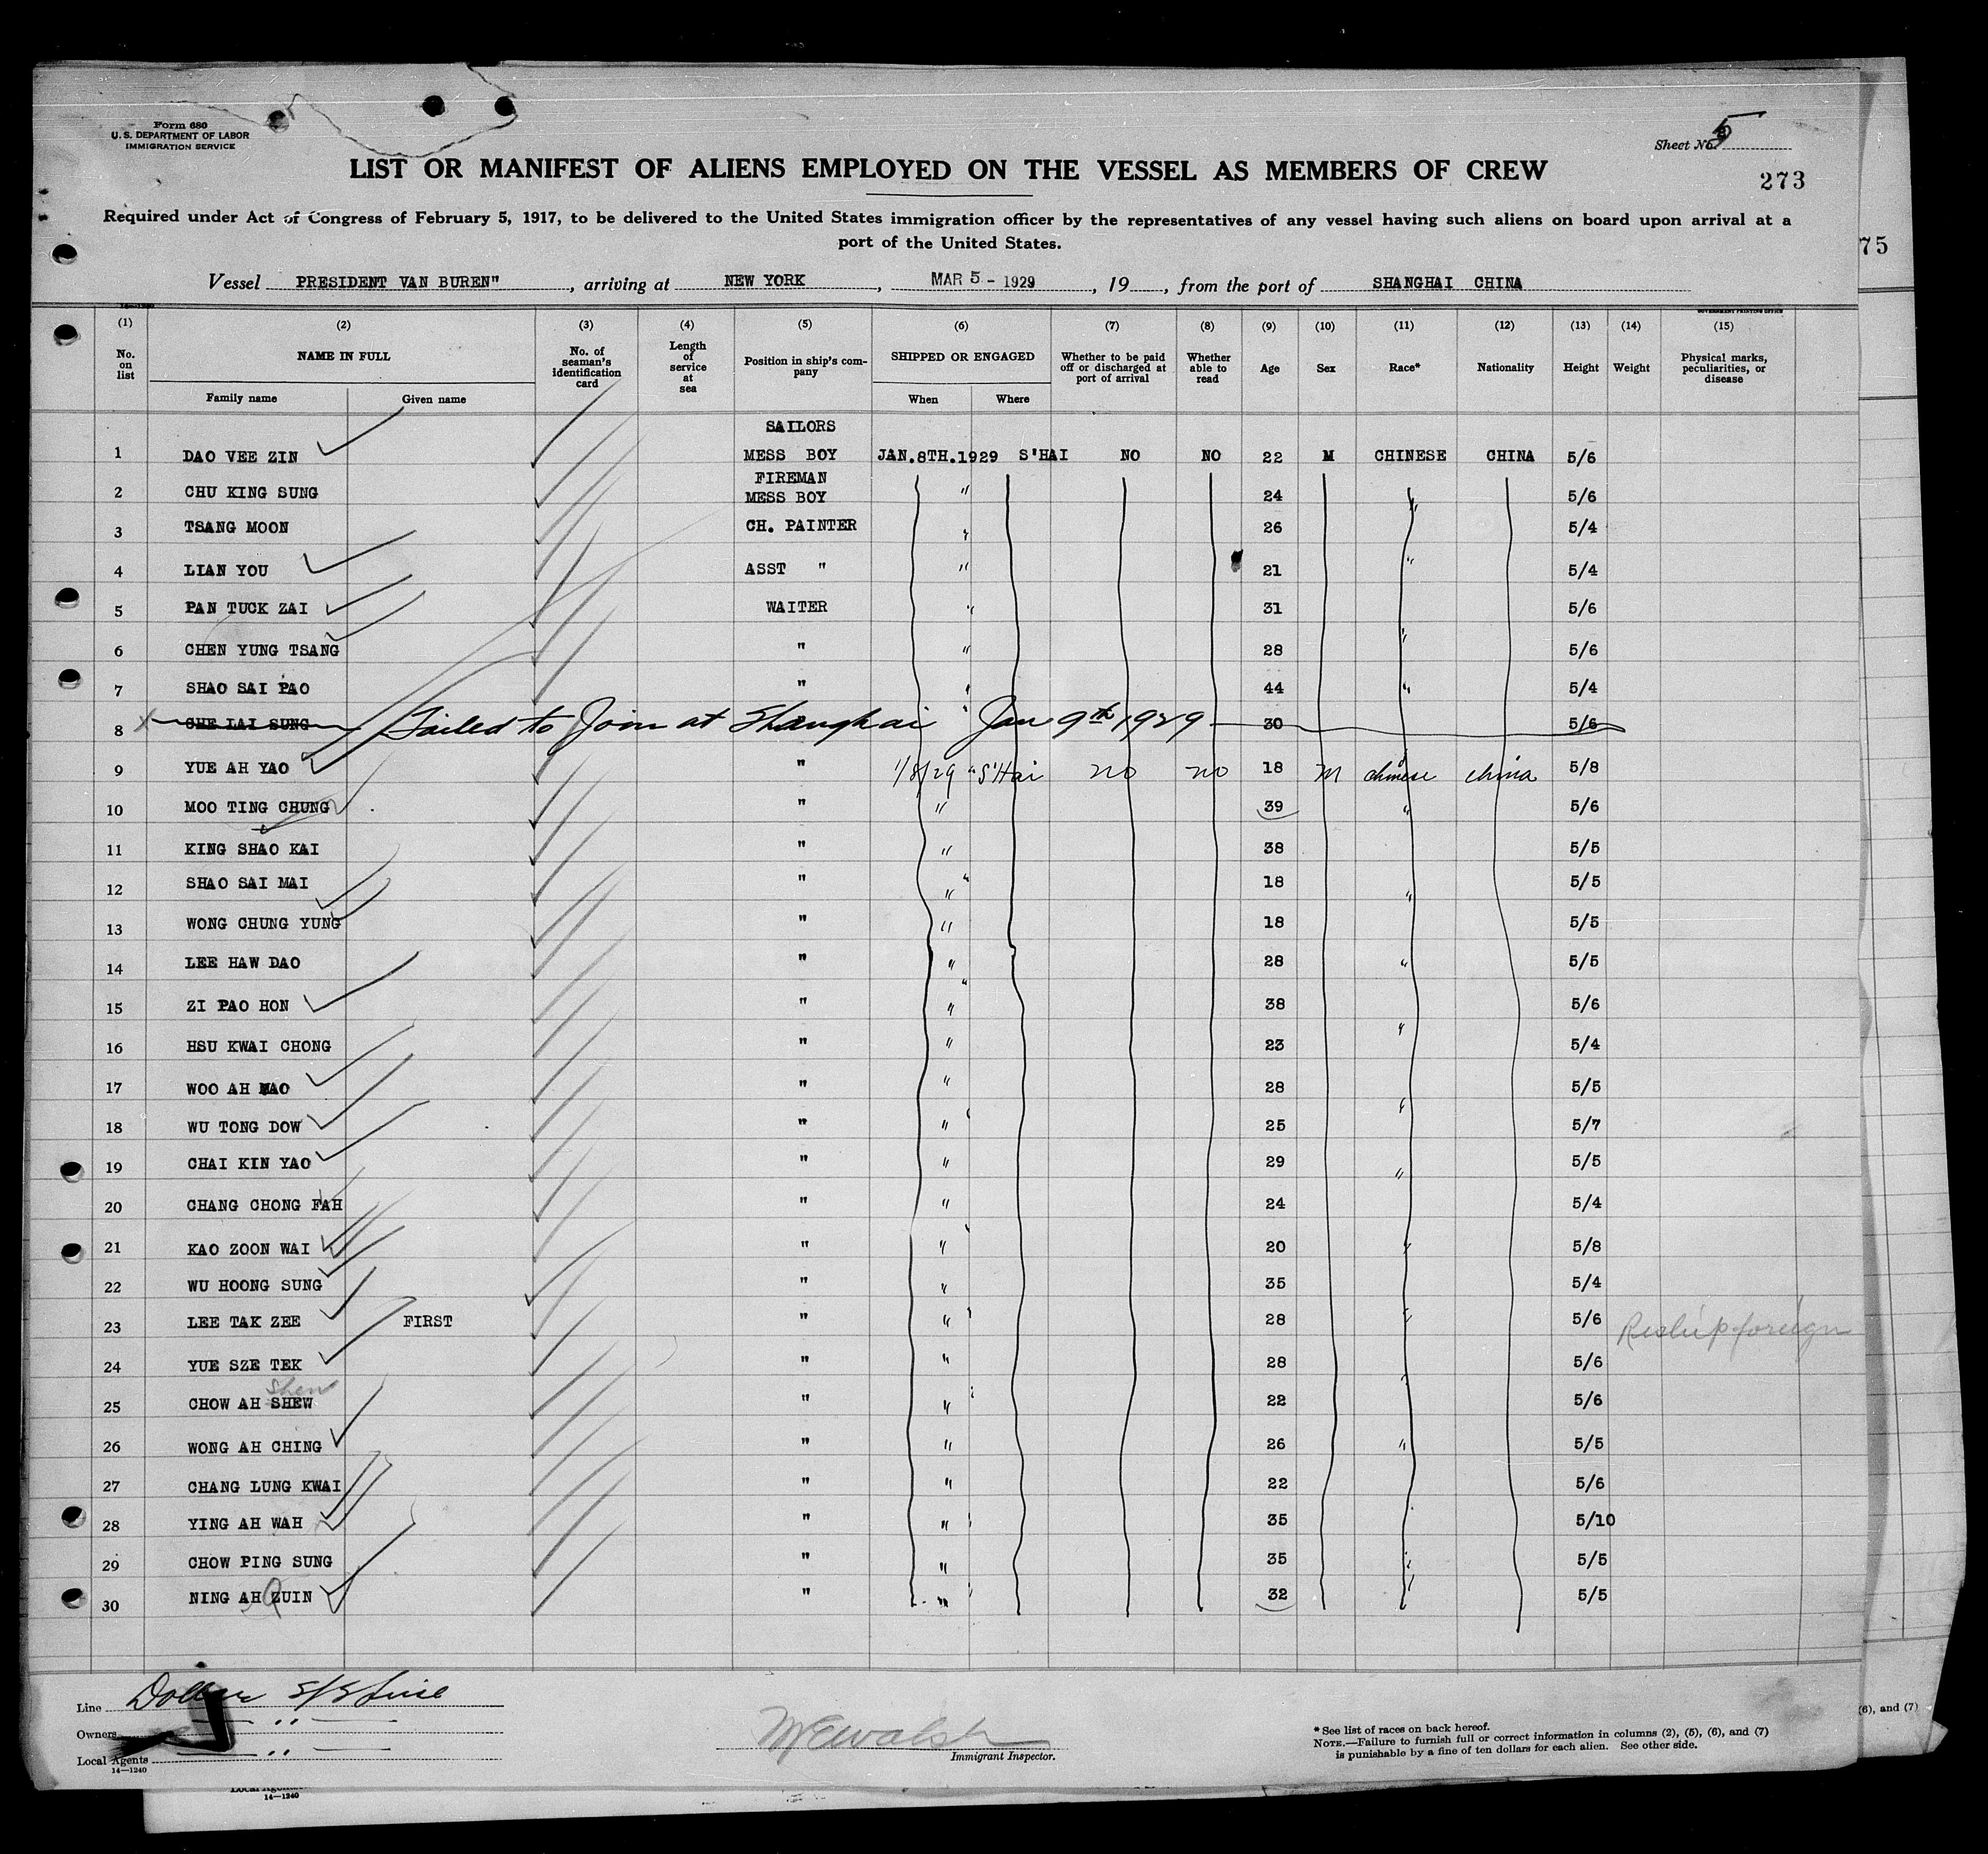 Form 680
U. S. DEPARTMENT OF LABOR
IMMIGRATION SERVICE
Sheet No. 5
273
LIST OR MANIFEST OF ALIENS EMPLOYED ON THE VESSEL AS MEMBERS OF CREW
Required under Act of Congress of February 5, 1917, to be delivered to the United States immigration officer by the representatives of any vessel having such aliens on board upon arrival at a
port of the United States.
75
Vessel PRESIDENT VAN BUREN", arriving at NEW YORK, MAR 5 - 1929, 19, from the port of SHANGHAI CHINA
14-1240
GOVERNMENT PRINTING OFFICE
(1) (2) (3) (4) (5) (6) (7) (8) (9) (10) (11) (12) (13) (14) (15)
No. on list NAME IN FULL Family name Given name No. of seaman's identification card Length of service at sea Position in ship's company SHIPPED OR ENGAGED When Where Whether to be paid off or discharged at port of arrival Whether able to read Age Sex Race* Nationality Height Weight Physical marks, peculiarities, or disease
SAILORS
1 DAO VEE ZIN MESS BOY JAN.8TH.1929 S'HAI NO NO 22 M CHINESE CHINA 5/6
FIREMAN
2 CHU KING SUNG MESS BOY " 24 " 5/6
3 TSANG MOON CH. PAINTER " 26 5/4
4 LIAN YOU ASST " " 21 " 5/4
5 PAN TUCK ZAI WAITER " 31 5/6
6 CHEN YUNG TSANG " " 28 " 5/6
7 SHAO SAI PAO " " 44 " 5/4
8 CHE LAI SUNG Failed to Join at Shanghai Jan 9th 1929 30 5/6
9 YUE AH YAO " 1/8/29 "S'Hai no no 18 M chinese china 5/8
10 MOO TING CHUNG " " 39 " 5/6
11 KING SHAO KAI " " 38 5/5
12 SHAO SAI MAI " " 18 " 5/5
13 WONG CHUNG YUNG " " 18 5/5
14 LEE HAW DAO " " 28 " 5/5
15 ZI PAO HON " " 38 5/6
16 HSU KWAI CHONG " " 23 " 5/4
17 WOO AH MAO " " 28 5/5
18 WU TONG DOW " " 25 " 5/7
19 CHAI KIN YAO " " 29 " 5/5
20 CHANG CHONG FAH " " 24 5/4
21 KAO ZOON WAI " " 20 " 5/8
22 WU HOONG SUNG " " 35 5/4
23 LEE TAK ZEE FIRST " " 28 " 5/6 Reship foreign
24 YUE SZE TEK " " 28 5/6
Shen
25 CHOW AH SHEW " " 22 " 5/6
26 WONG AH CHING " " 26 " 5/5
27 CHANG LUNG KWAI " " 22 5/6
28 YING AH WAH " " 35 5/10
29 CHOW PING SUNG " " 35 " 5/5
30 NING AH ZUIN " " 32 " 5/5
Line Dollar S/S Line
Owners "
Local Agents "
14-1240
Immigrant Inspector.
* See list of races on back hereof.
NOTE.—Failure to furnish full or correct information in columns (2), (5), (6), and (7)
is punishable by a fine of ten dollars for each alien. See other side.
(6), and (7)
Local Agents
14-1240